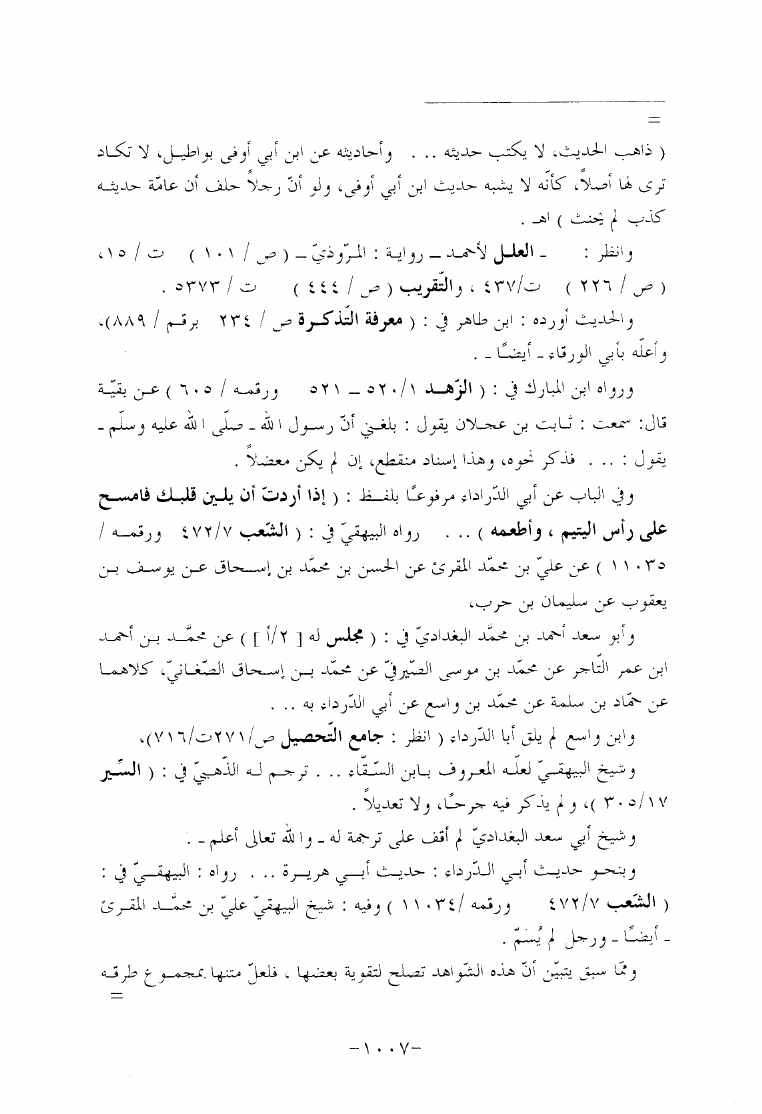 =
( ذاهب الحديث، لا يكتب حديثه ... وأحاديثه عن ابن أبي أوفى بواطيل، لا تكاد
ترى لها أصلاً، كأنّه لا يشبه حديث ابن أبي أوفى، ولو أنّ رجلاً حلف أن عامّة حديثه
كذب لم يحنث ) اهـ .
وانظر : - العلل لأحمد – رواية : المرّوذيّ – ( ص / ١٠١ ) ت / ١٥ ،
( ص / ٢٢٦ ) ت/٤٣٧ ، والتّقريب ( ص / ٤٤٤ ) ت / ٥٣٧٣ .
والحديث أورده : ابن طاهر في : ( معرفة التّذكرة ص / ٢٣٤ برقم / ٨٨٩)،
وأعلّه بأبي الورقاء - أيضًا - .
ورواه ابن المبارك في : ( الزّهد ٥٢٠/١ – ٥٢١ ورقمه / ٦٠٥ ) عن بقيّة
قال: سمعت : ثابت بن عجلان يقول : بلغني أنّ رسول الله - صلّى الله عليه وسلّم -
يقول : ... فذكر نحوه، وهذا إسناد منقطع، إن لم يكن معضلاً .
وفي الباب عن أبي الدّرداء مرفوعًا بلفظ : ( إذا أردتّ أن يلين قلبك فامسح
على رأس اليتيم ، وأطعمه ) ... رواه البيهقيّ في : ( الشّعب ٤٧٢/٧ ورقمه /
١١٠٣٥ ) عن عليّ بن محمّد المقرئ عن الحسن بن محمّد بن إسحاق عن يوسف بن
يعقوب عن سليمان بن حرب،
وأبو سعد أحمد بن محمّد البغداديّ في : ( مجلس له [ ٢/أ ] ) عن محمّد بن أحمد
ابن عمر التّاجر عن محمّد بن موسى الصّيرفيّ عن محمّد بن إسحاق الصّغانيّ، كلاهما
عن حمّاد بن سلمة عن محمّد بن واسع عن أبي الدّرداء به ... .
وابن واسع لم يلق أبا الدّرداء ( انظر : جامع التّحصيل ص/٢٧١ت/٧١٦)،
وشيخ البيهقيّ لعلّه المعروف بابن السّقّاء ... ترجم له الذّهبيّ في : ( السّير
٣٠٥/١٧ )، ولم يذكر فيه جرحًا، ولا تعديلاً .
وشيخ أبي سعد البغداديّ لم أقف على ترجمة له - والله تعالى أعلم - .
وبنحو حديث أبي الدّرداء : حديث أبي هريرة ... رواه : البيهقيّ في :
( الشّعب ٤٧٢/٧ ورقمه /١١٠٣٤ ) وفيه : شيخ البيهقيّ عليّ بن محمّد المقرئ
- أيضًا - ورجل لم يُسَمّ .
وممّا سبق يتبيّن أنّ هذه الشّواهد تصلح لتقوية بعضها ، فلعلّ متنها بمجموع طرقه
=
-١٠٠٧-